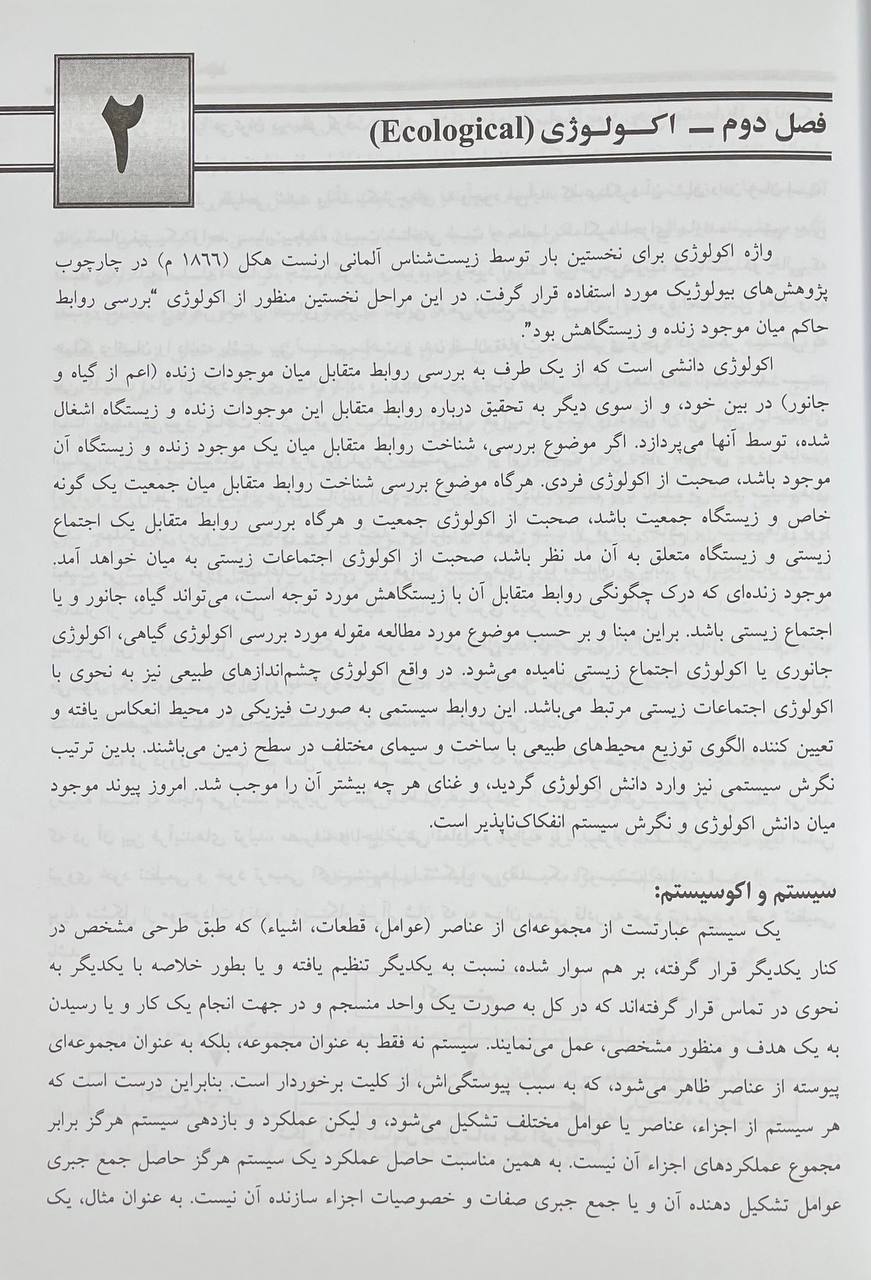 ۲
فصل دوم – اکولوژی (Ecological)
واژه اکولوژی برای نخستین بار توسط زیست‌شناس آلمانی ارنست هکل (۱۸۶۶ م) در چارچوب
پژوهش‌های بیولوژیک مورد استفاده قرار گرفت. در این مراحل نخستین منظور از اکولوژی "بررسی روابط
حاکم میان موجود زنده و زیستگاهش بود".
اکولوژی دانشی است که از یک طرف به بررسی روابط متقابل میان موجودات زنده (اعم از گیاه و
جانور) در بین خود، و از سوی دیگر به تحقیق درباره روابط متقابل این موجودات زنده و زیستگاه اشغال
شده، توسط آنها می‌پردازد. اگر موضوع بررسی، شناخت روابط متقابل میان یک موجود زنده و زیستگاه آن
موجود باشد، صحبت از اکولوژی فردی. هرگاه موضوع بررسی شناخت روابط متقابل میان جمعیت یک گونه
خاص و زیستگاه جمعیت باشد، صحبت از اکولوژی جمعیت و هرگاه بررسی روابط متقابل یک اجتماع
زیستی و زیستگاه متعلق به آن مد نظر باشد، صحبت از اکولوژی اجتماعات زیستی به میان خواهد آمد.
موجود زنده‌ای که درک چگونگی روابط متقابل آن با زیستگاهش مورد توجه است، می‌تواند گیاه، جانور و یا
اجتماع زیستی باشد. براین مبنا و بر حسب موضوع مورد مطالعه مقوله مورد بررسی اکولوژی گیاهی، اکولوژی
جانوری یا اکولوژی اجتماع زیستی نامیده می‌شود. در واقع اکولوژی چشم‌اندازهای طبیعی نیز به نحوی با
اکولوژی اجتماعات زیستی مرتبط می‌باشد. این روابط سیستمی به صورت فیزیکی در محیط انعکاس یافته و
تعیین کننده الگوی توزیع محیط‌های طبیعی با ساخت و سیمای مختلف در سطح زمین می‌باشند. بدین ترتیب
نگرش سیستمی نیز وارد دانش اکولوژی گردید، و غنای هر چه بیشتر آن را موجب شد. امروز پیوند موجود
میان دانش اکولوژی و نگرش سیستم انفکاک‌ناپذیر است.
سیستم و اکوسیستم:
یک سیستم عبارتست از مجموعه‌ای از عناصر (عوامل، قطعات، اشیاء) که طبق طرحی مشخص در
کنار یکدیگر قرار گرفته، بر هم سوار شده، نسبت به یکدیگر تنظیم یافته و یا بطور خلاصه با یکدیگر به
نحوی در تماس قرار گرفته‌اند که در کل به صورت یک واحد منسجم و در جهت انجام یک کار و یا رسیدن
به یک هدف و منظور مشخصی، عمل می‌نمایند. سیستم نه فقط به عنوان مجموعه، بلکه به عنوان مجموعه‌ای
پیوسته از عناصر ظاهر می‌شود، که به سبب پیوستگی‌اش، از کلیت برخوردار است. بنابراین درست است که
هر سیستم از اجزاء، عناصر یا عوامل مختلف تشکیل می‌شود، و لیکن عملکرد و بازدهی سیستم هرگز برابر
مجموع عملکردهای اجزاء آن نیست. به همین مناسبت حاصل عملکرد یک سیستم هرگز حاصل جمع جبری
عوامل تشکیل دهنده آن و یا جمع جبری صفات و خصوصیات اجزاء سازنده آن نیست. به عنوان مثال، یک